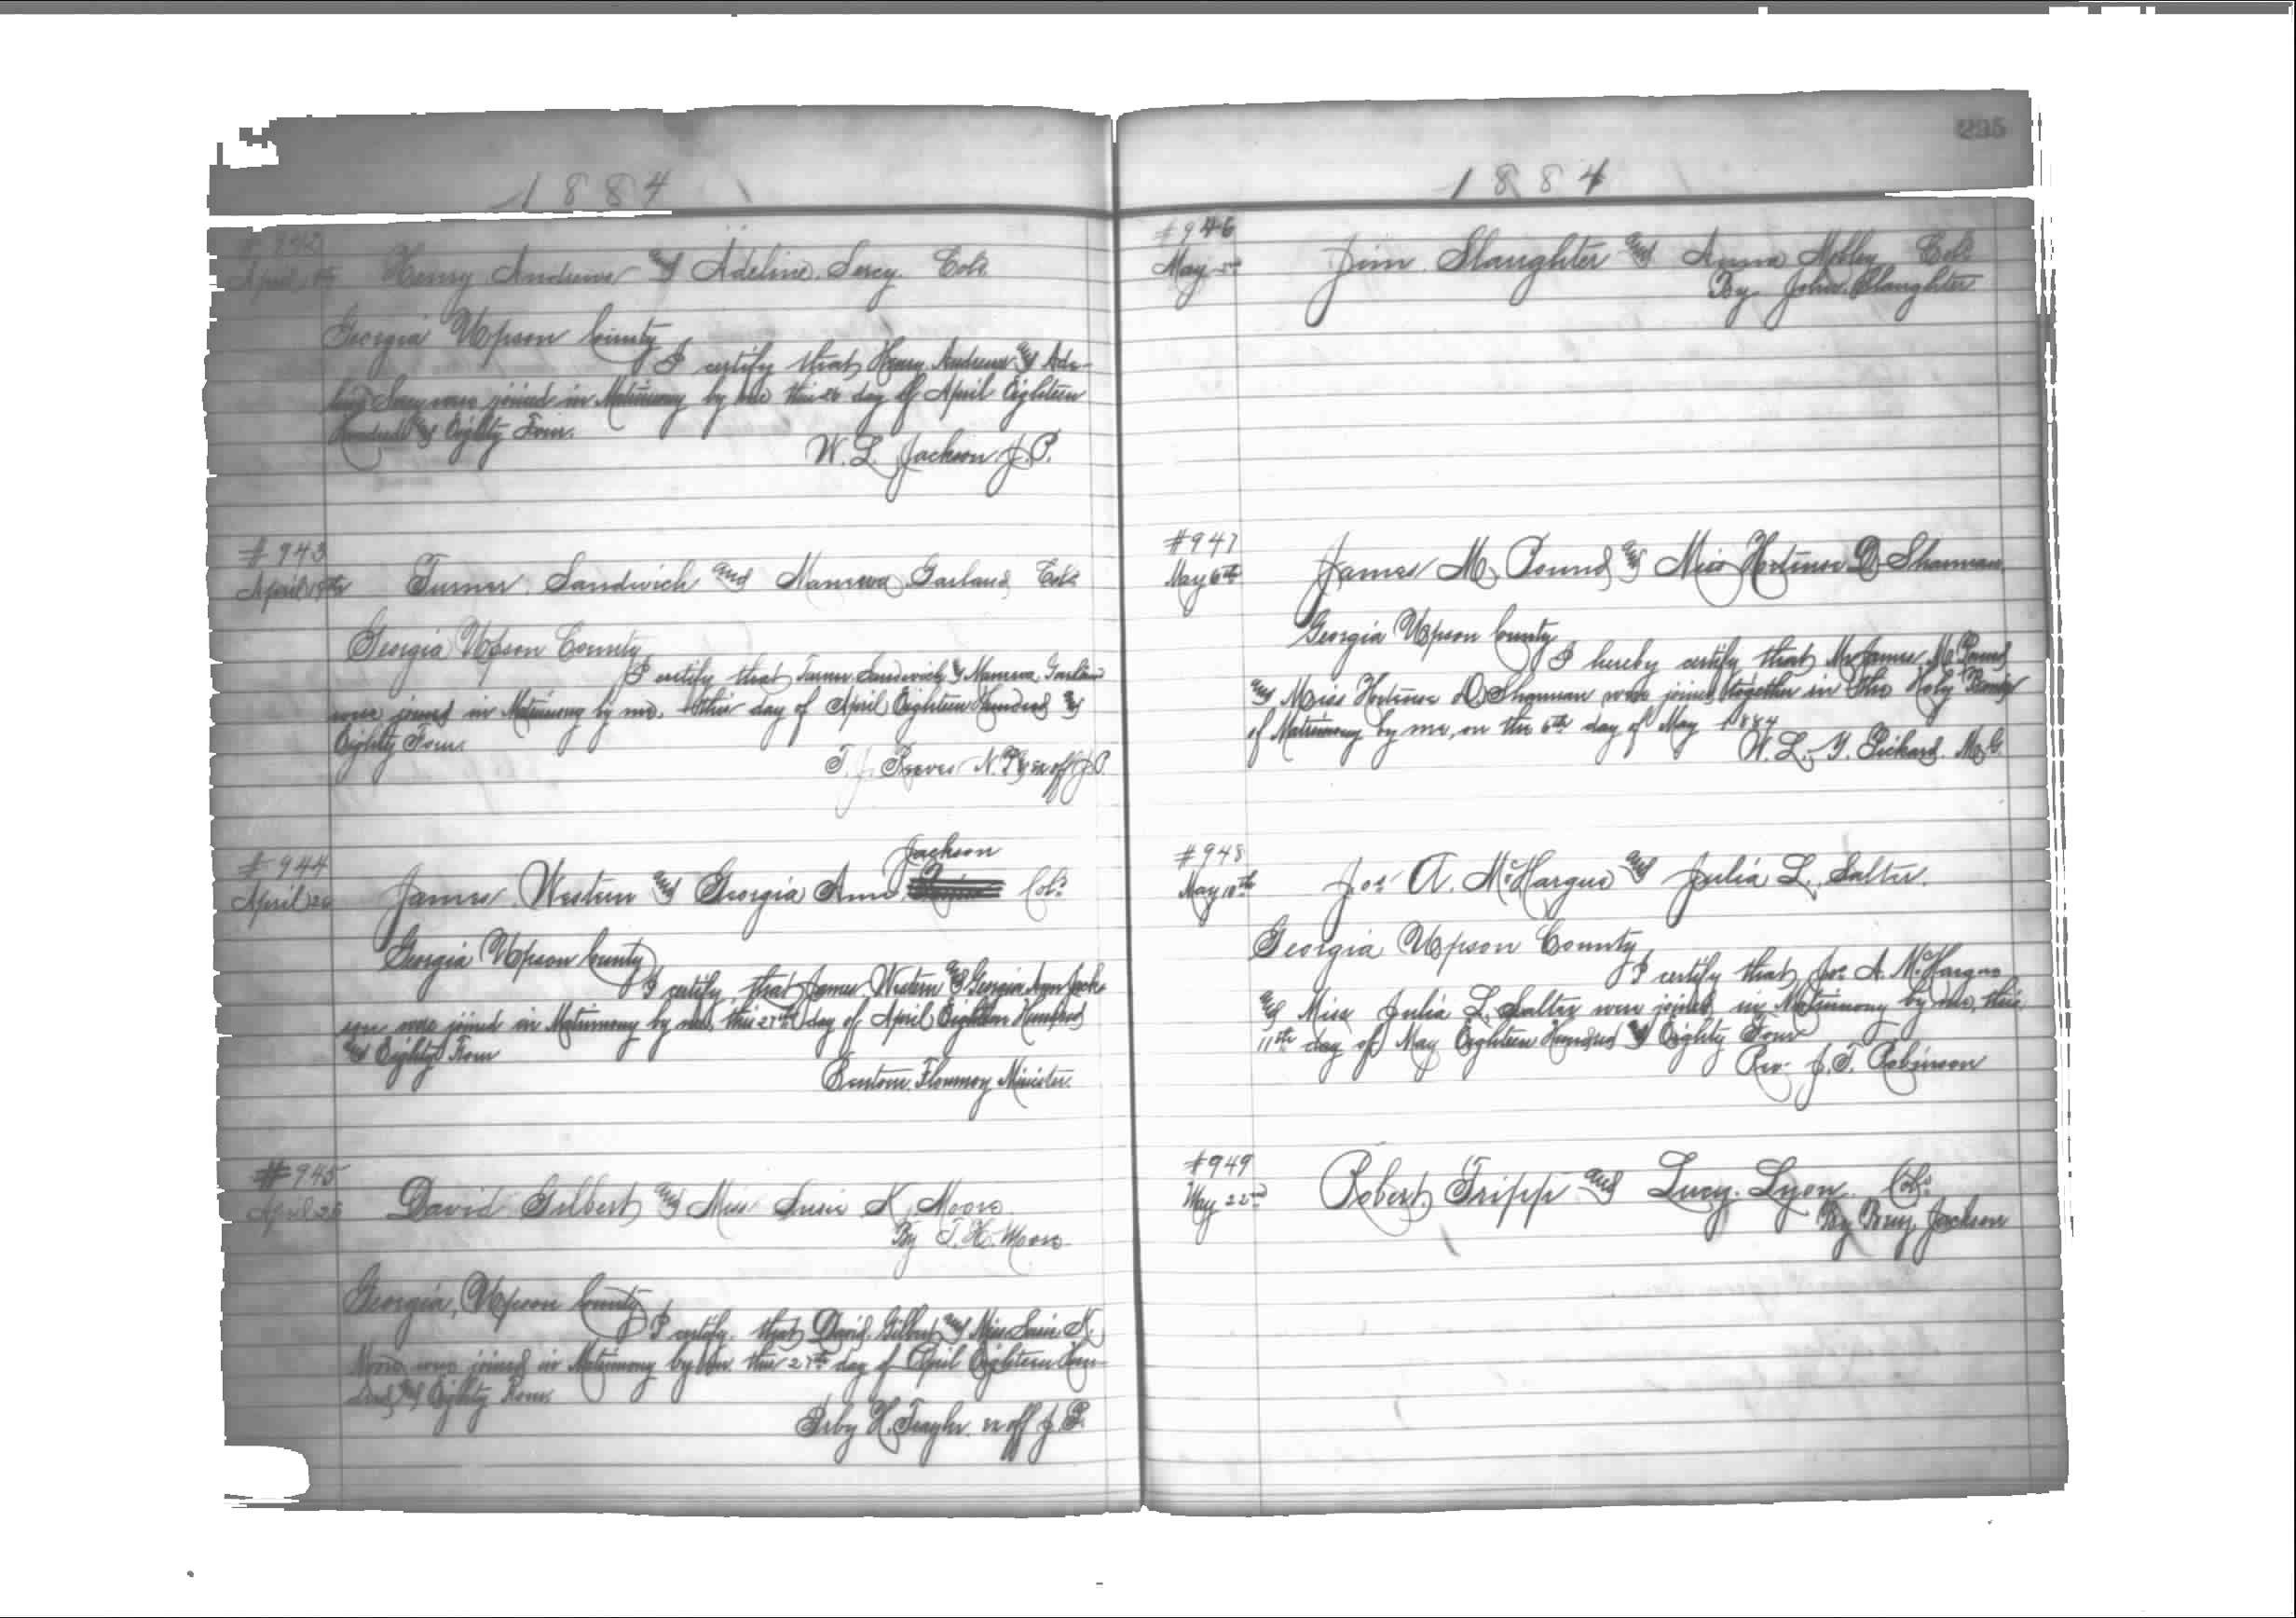 1884
April
Henry Andrews and Adeline Searcy Cold
Georgia Upson County
I certify that Henry Andrews and Ade-
were joined in Matrimony by me this 26 day of April Eighteen
Hundred and Eighty Four.
W. L. Jackson J. P.
#943
April 19th
Turner Sandwich and Garland Cold
Georgia Upson County
I certify that Turner Sandwich & Garland
were joined in Matrimony by me, this day of April Eighteen Hundred and
Eighty Four.
T. J. Reeves N. P. & ex off J. P.
#944
April 26
Jackson
James Western and Georgia Ann Cold
Georgia Upson County
I certify that James Western and Georgia Ann Jack-
son were joined in Matrimony by me, this 27th day of April Eighteen Hundred
and Eighty Four
Flournoy Minister.
#945
April 26
David Gilbert and Miss Susie K. Moore.
By T. H. Moore
Georgia, Upson County
I certify that David Gilbert and Miss Susie K.
Moore were joined in Matrimony by me this 27th day of April Eighteen Hun-
dred and Eighty Four
H. Traylor ex off J. P.
295
1884
#946
May 5th
Jim Slaughter and Anna Mobley Cold
By John Slaughter
#947
May 6th
James M. Pound and Miss Hortense D. Sharman.
Georgia Upson County
I hereby certify that Mr James M. Pound
and Miss Hortense D. Sharman were joined together in the Holy Bonds
of Matrimony by me, on the 6th day of May 1884
W. L. Pickard. M. G.
#948
May 10th
Jos A. McHargue and Julia L. Salter.
Georgia Upson County
I certify that Jos A. McHargue
and Miss Julia L. Salter were joined in Matrimony by me, this
11th day of May Eighteen Hundred and Eighty Four
Rev. J. T. Robinson
#949
May 22nd
Robert Tripp and Lucy Lyon Cold
By Jackson